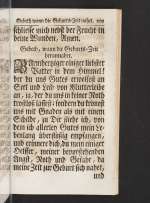 Gebeth wann die Geburts-Zeit
schliesse mich nebst der Frucht in
deine Wunden, Amen.
Gebeth, wann die Geburts-Zeit
herannahet.
Barmherziger einiger liebster
Vatter in dem Himmel!
der du uns Gutes erweisest an
Seel und Leib von Mutterleibe
an, ja, der du uns in keiner Noth
trostlos lassest, sondern du krönest
uns mit Gnaden als mit einem
Schilde, zu Dir siehe ich, von
dem ich allerley Gutes mein Le-
benlang überflüssig empfangen,
und erinnere dich, du mein einiger
Helffer, meiner bevorstehenden
Angst, Noth und Gefahr, da
meine Zeit zur Geburt sich nahet,
und